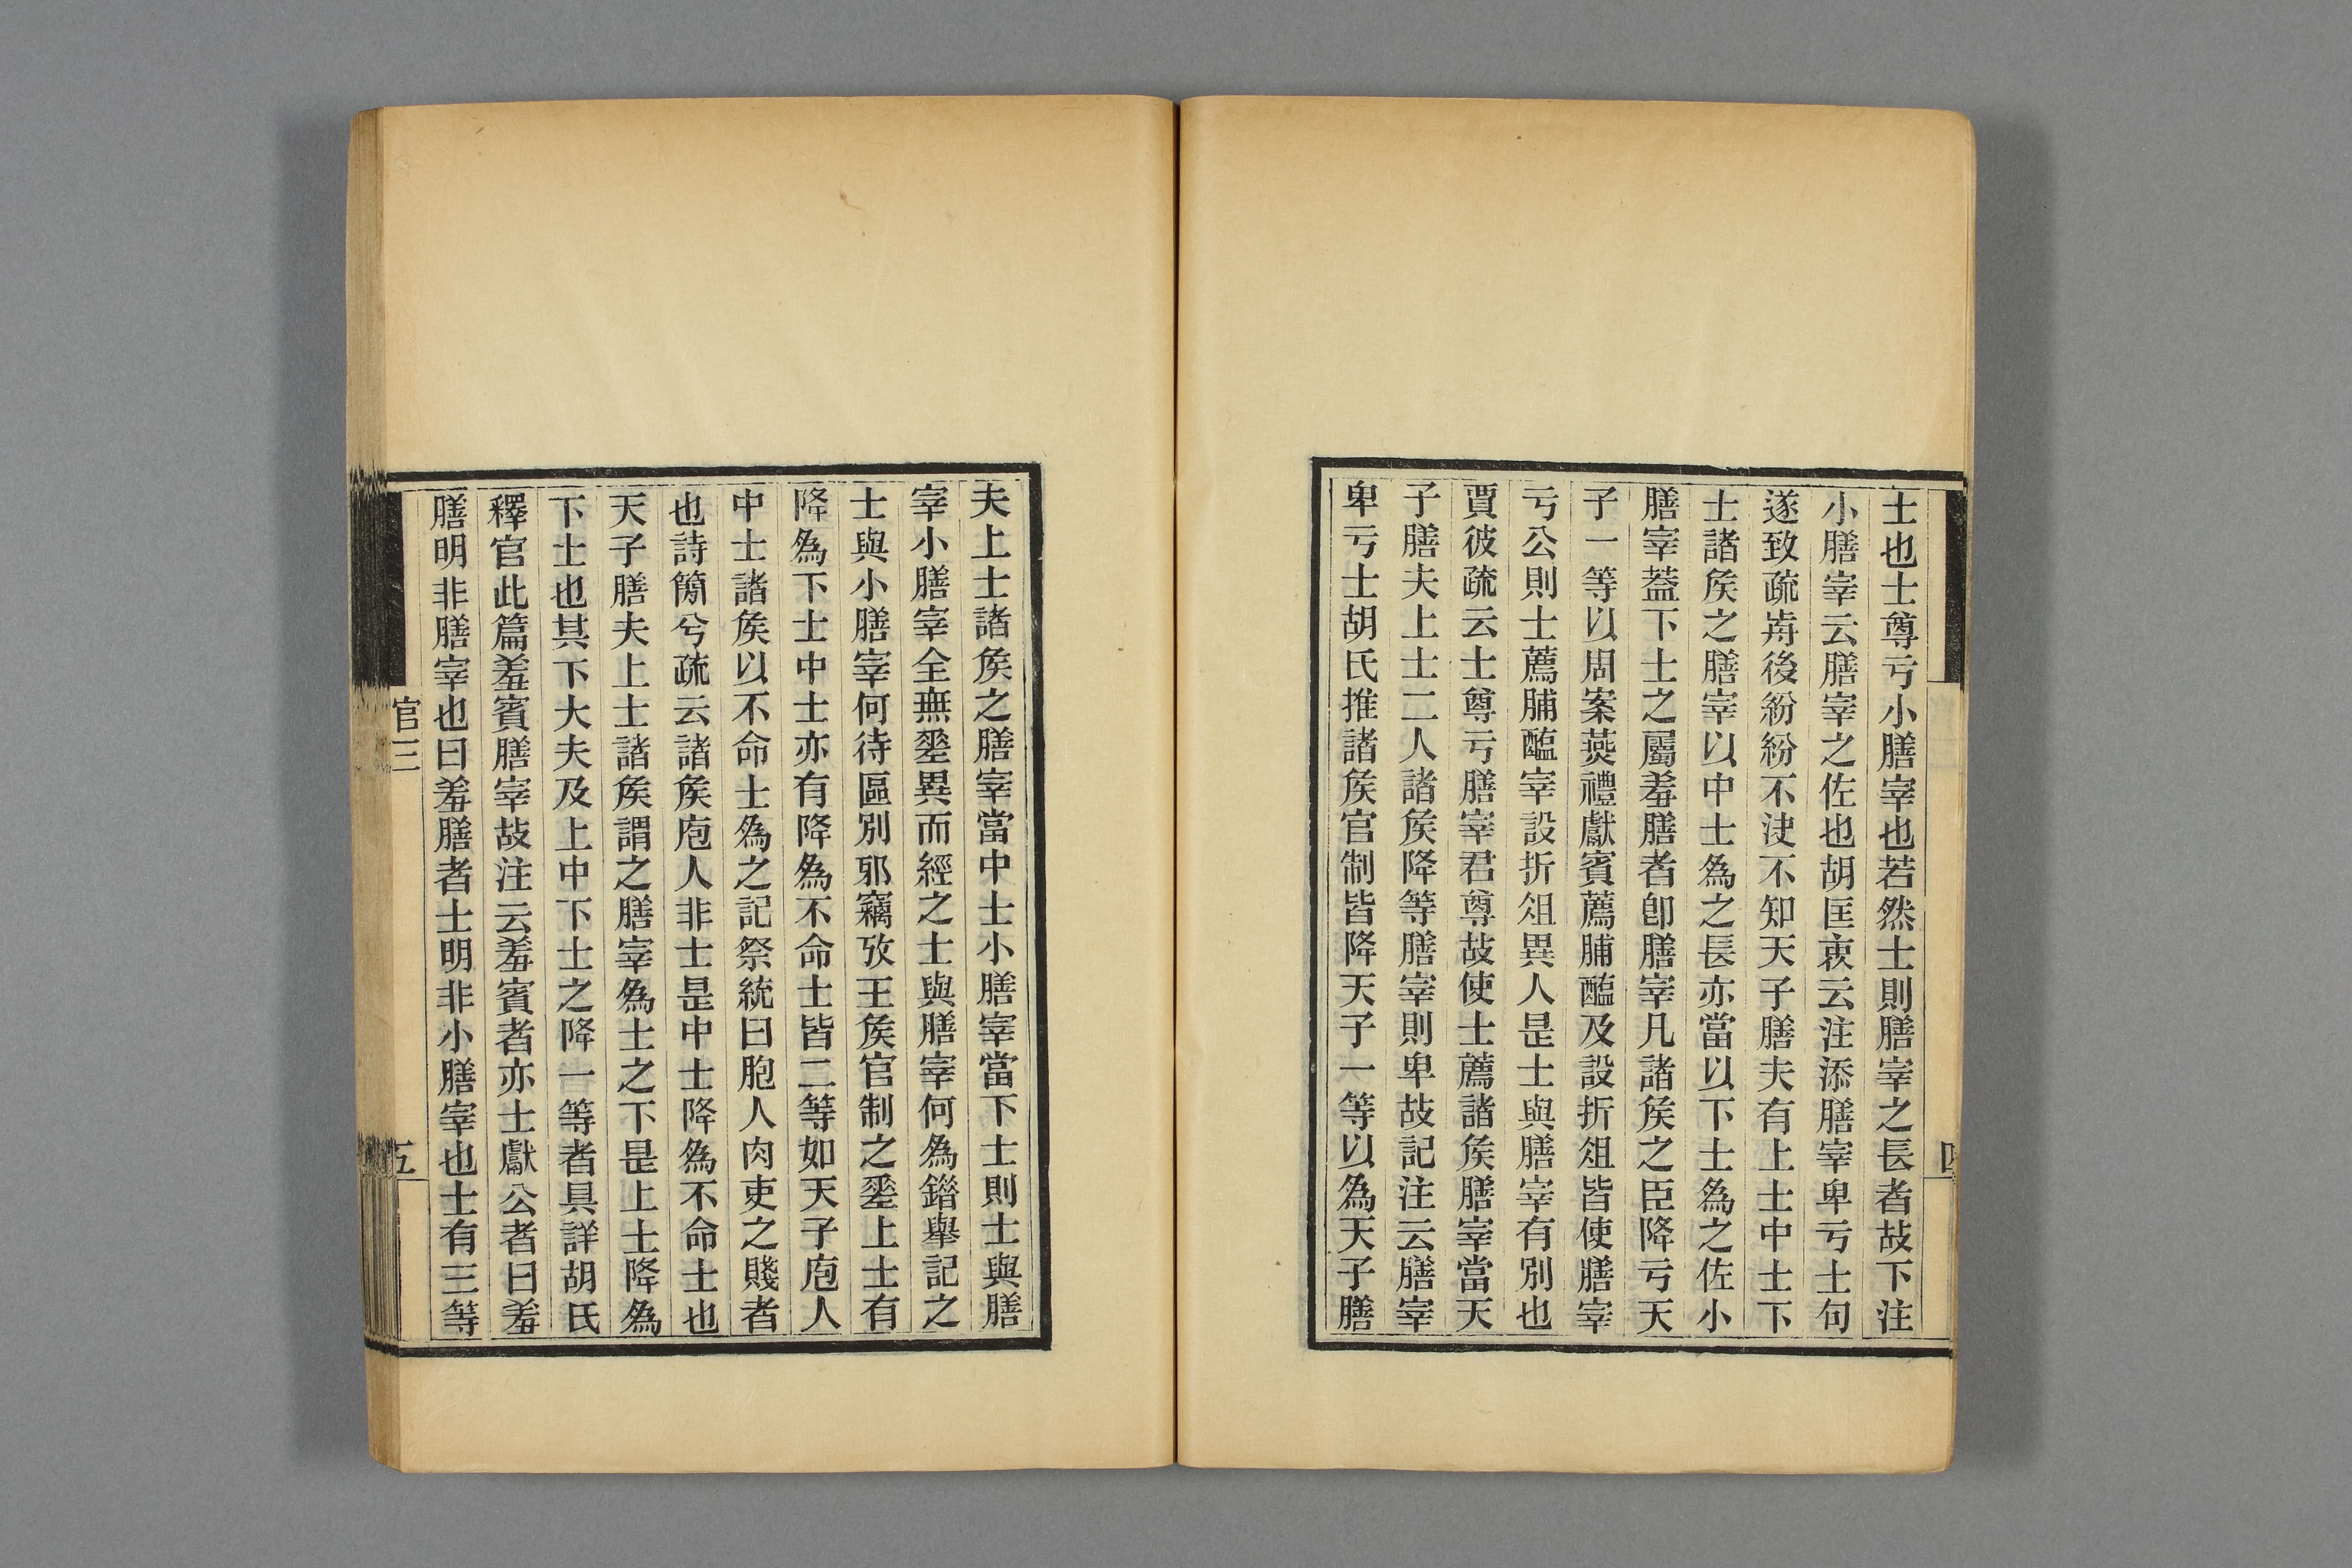 士也士尊亏小膳宰也若然士則膳宰之長者故下注
小膳宰云膳宰之佐也胡匡衷云注添膳宰卑亏士句
遂致疏歬後紛紛不決不知天子膳夫有上士中士下
士諸矦之膳宰以中士為之長亦當以下士為之佐小
膳宰葢下士之屬羞膳者卽膳宰凡諸矦之臣降亏天
子一等以周案燕禮獻賓薦脯醢及設折俎皆使膳宰
亏公則士薦脯醢宰設折俎異人是士與膳宰有別也
賈彼疏云士尊亏膳宰君尊故使士薦諸矦膳宰當天
子膳夫上士二人諸矦降等膳宰則卑故記注云膳宰
卑亏士胡氏推諸矦官制皆降天子一等以為天子膳
夫上士諸矦之膳宰當中士小膳宰當下士則士與膳
宰小膳宰全無㘴異而經之士與膳宰何為錯舉記之
士與小膳宰何待區別邪竊攷王矦官制之㘴上士有
降為下士中士亦有降為不命士皆二等如天子庖人
中士諸矦以不命士為之記祭統曰胞人肉吏之賤者
也詩簡兮疏云諸矦庖人非士是中士降為不命士也
天子膳夫上士諸矦謂之膳宰為士之下是上士降為
下士也其下大夫及上中下士之降一等者具詳胡氏
釋官此篇羞賓膳宰故注云羞賓者亦士獻公者曰羞
膳明非膳宰也曰羞膳者士明非小膳宰也士有三等
官三
五